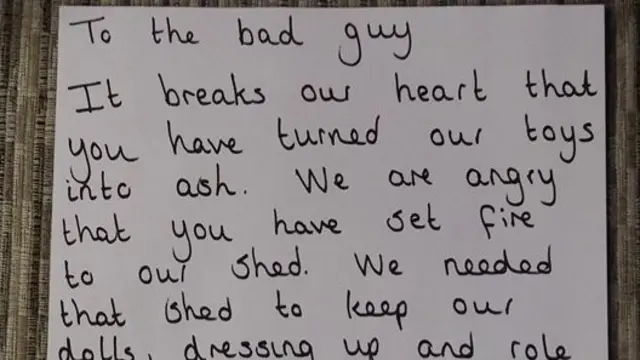 To the bad guy
It breaks our heart that
you have turned our toys
into ash. We are angry
that you have set fire
to our shed. We needed
that shed to keep our
dolls, dressing up and role